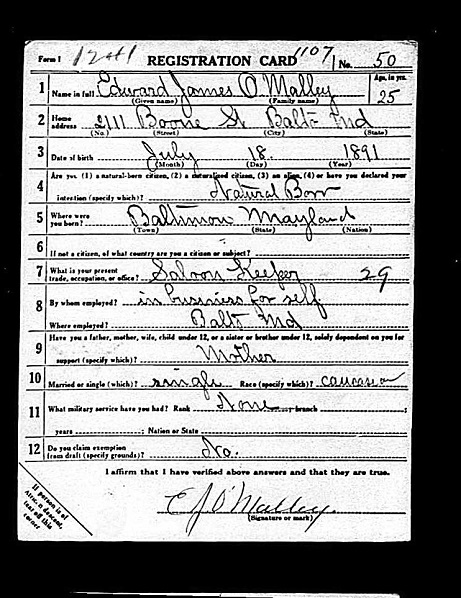 Form 1 1241 REGISTRATION CARD 1107 No. 50
1 Name in full Edward James O'Malley Age, in yrs. 25
(Given name) (Family name)
2 Home address 2111 Boone St Balto Md
(No.) (Street) (City) (State)
3 Date of birth July 18 1891
(Month) (Day) (Year)
4 Are you (1) a natural-born citizen, (2) a naturalized citizen, (3) an alien, (4) or have you declared your
intention (specify which)? Natural Born
5 Where were you born? Baltimore Mayland
(Town) (State) (Nation)
6 If not a citizen, of what country are you a citizen or subject?
7 What is your present trade, occupation, or office? Saloon Keeper 29
8 By whom employed? in business for self
Where employed? Balto Md
9 Have you a father, mother, wife, child under 12, or a sister or brother under 12, solely dependent on you for
support (specify which)? Mother
10 Married or single (which)? single Race (specify which)? caucasian
11 What military service have you had? Rank None ; branch ;
years ; Nation or State
12 Do you claim exemption from draft (specify grounds)? No.
I affirm that I have verified above answers and that they are true.
E J O'Malley.
(Signature or mark)
If person is of
African descent,
tear off this
corner